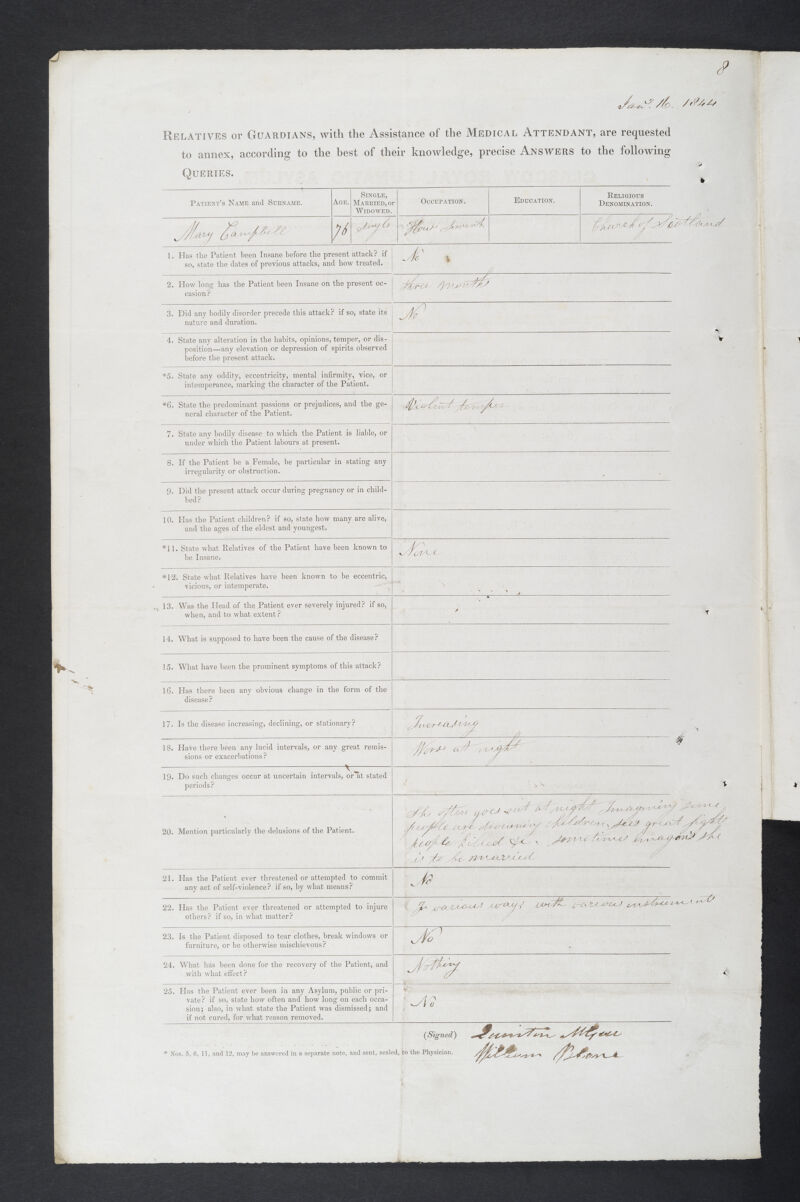 8
Jany. 16. 1844
RELATIVES or GUARDIANS, with the Assistance of the MEDICAL ATTENDANT, are requested
to annex, according to the best of their knowledge, precise ANSWERS to the following
QUERIES.
PATIENT'S NAME AND SURNAME. AGE. SINGLE, MARRIED, or WIDOWED. OCCUPATION. EDUCATION. RELIGIOUS DENOMINATION.
Mary Campbell 76 Single House Servant Church of Scotland
1. Has the Patient been Insane before the present attack? if No
so, state the dates of previous attacks, and how treated.
2. How long has the Patient been Insane on the present oc- three months
casion?
3. Did any bodily disorder precede this attack? if so, state its No
nature and duration.
4. State any alteration in the habits, opinions, temper, or dis-
position—any elevation or depression of spirits observed
before the present attack.
*5. State any oddity, eccentricity, mental infirmity, vice, or
intemperance, marking the character of the Patient.
*6. State the predominant passions or prejudices, and the ge- Violent temper
neral character of the Patient.
7. State any bodily disease to which the Patient is liable, or
under which the Patient labours at present.
8. If the Patient be a Female, be particular in stating any
irregularity or obstruction.
9. Did the present attack occur during pregnancy or in child-
bed?
10. Has the Patient children? if so, state how many are alive,
and the ages of the eldest and youngest.
*11. State what Relatives of the Patient have been known to None
be Insane.
*12. State what Relatives have been known to be eccentric,
vicious, or intemperate.
13. Was the Head of the Patient ever severely injured? if so,
when, and to what extent?
14. What is supposed to have been the cause of the disease?
15. What have been the prominent symptoms of this attack?
16. Has there been any obvious change in the form of the
disease?
17. Is the disease increasing, declining, or stationary? Increasing
18. Have there been any lucid intervals, or any great remis- Worse at night
sions or exacerbations?
19. Do such changes occur at uncertain intervals, or at stated
periods?
20. Mention particularly the delusions of the Patient.
She often goes out at night Imagining some
people are drowning children, sees great fights
people killed &c. sometimes imagons she
is to be married
21. Has the Patient ever threatened or attempted to commit No
any act of self-violence? if so, by what means?
22. Has the Patient ever threatened or attempted to injure In various ways with various instruments
others? if so, in what matter?
23. Is the Patient disposed to tear clothes, break windows or No
furniture, or be otherwise mischievous?
24. What has been done for the recovery of the Patient, and Nothing
with what effect?
25. Has the Patient ever been in any Asylum, public or pri-
vate? if so, state how often and how long on each occa- No
sion; also, in what state the Patient was dismissed; and
if not cured, for what reason removed.
(Signed) Quinton
William
* Nos. 5, 6, 11, and 12, may be answered in a separate note, and sent, sealed, to the Physician.